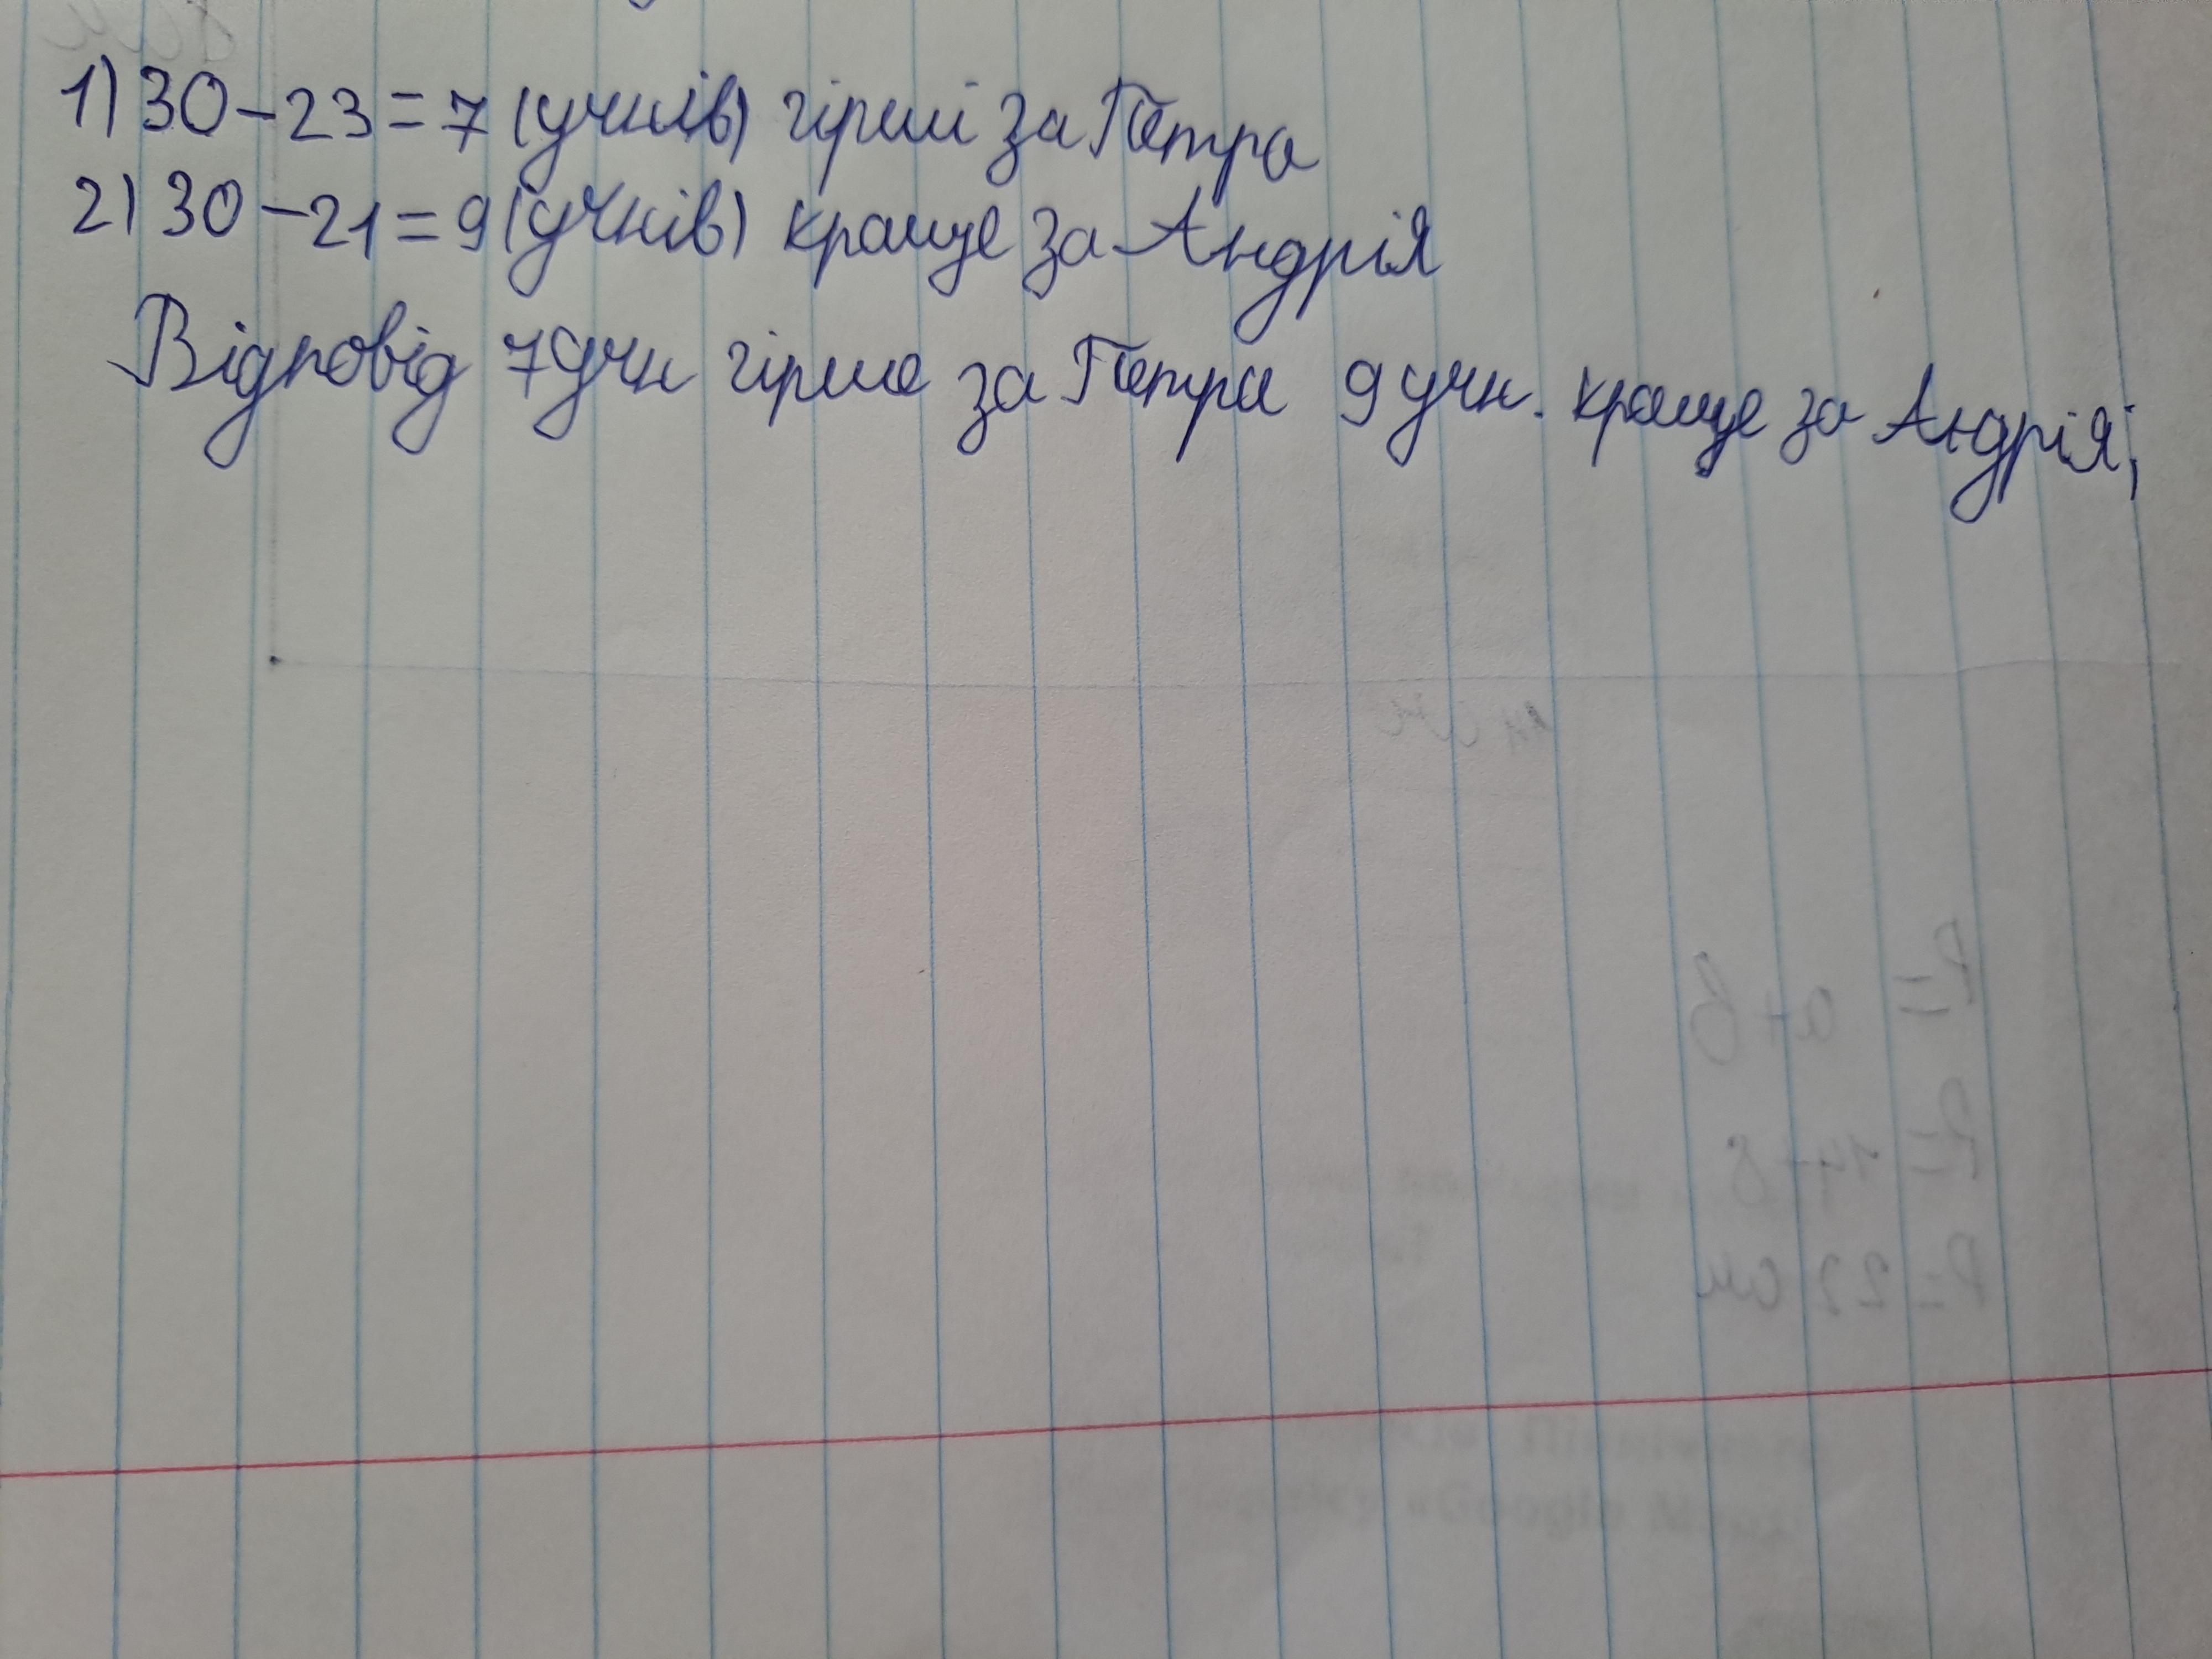 1) 30-23=7 (учнів) гірші за Петра
2) 30-21=9 (учнів) краще за Андрія
Відповід 7 учн гірше за Петра 9 учн. краще за Андрія;
P= a+b
P= 14+8
P=22 см